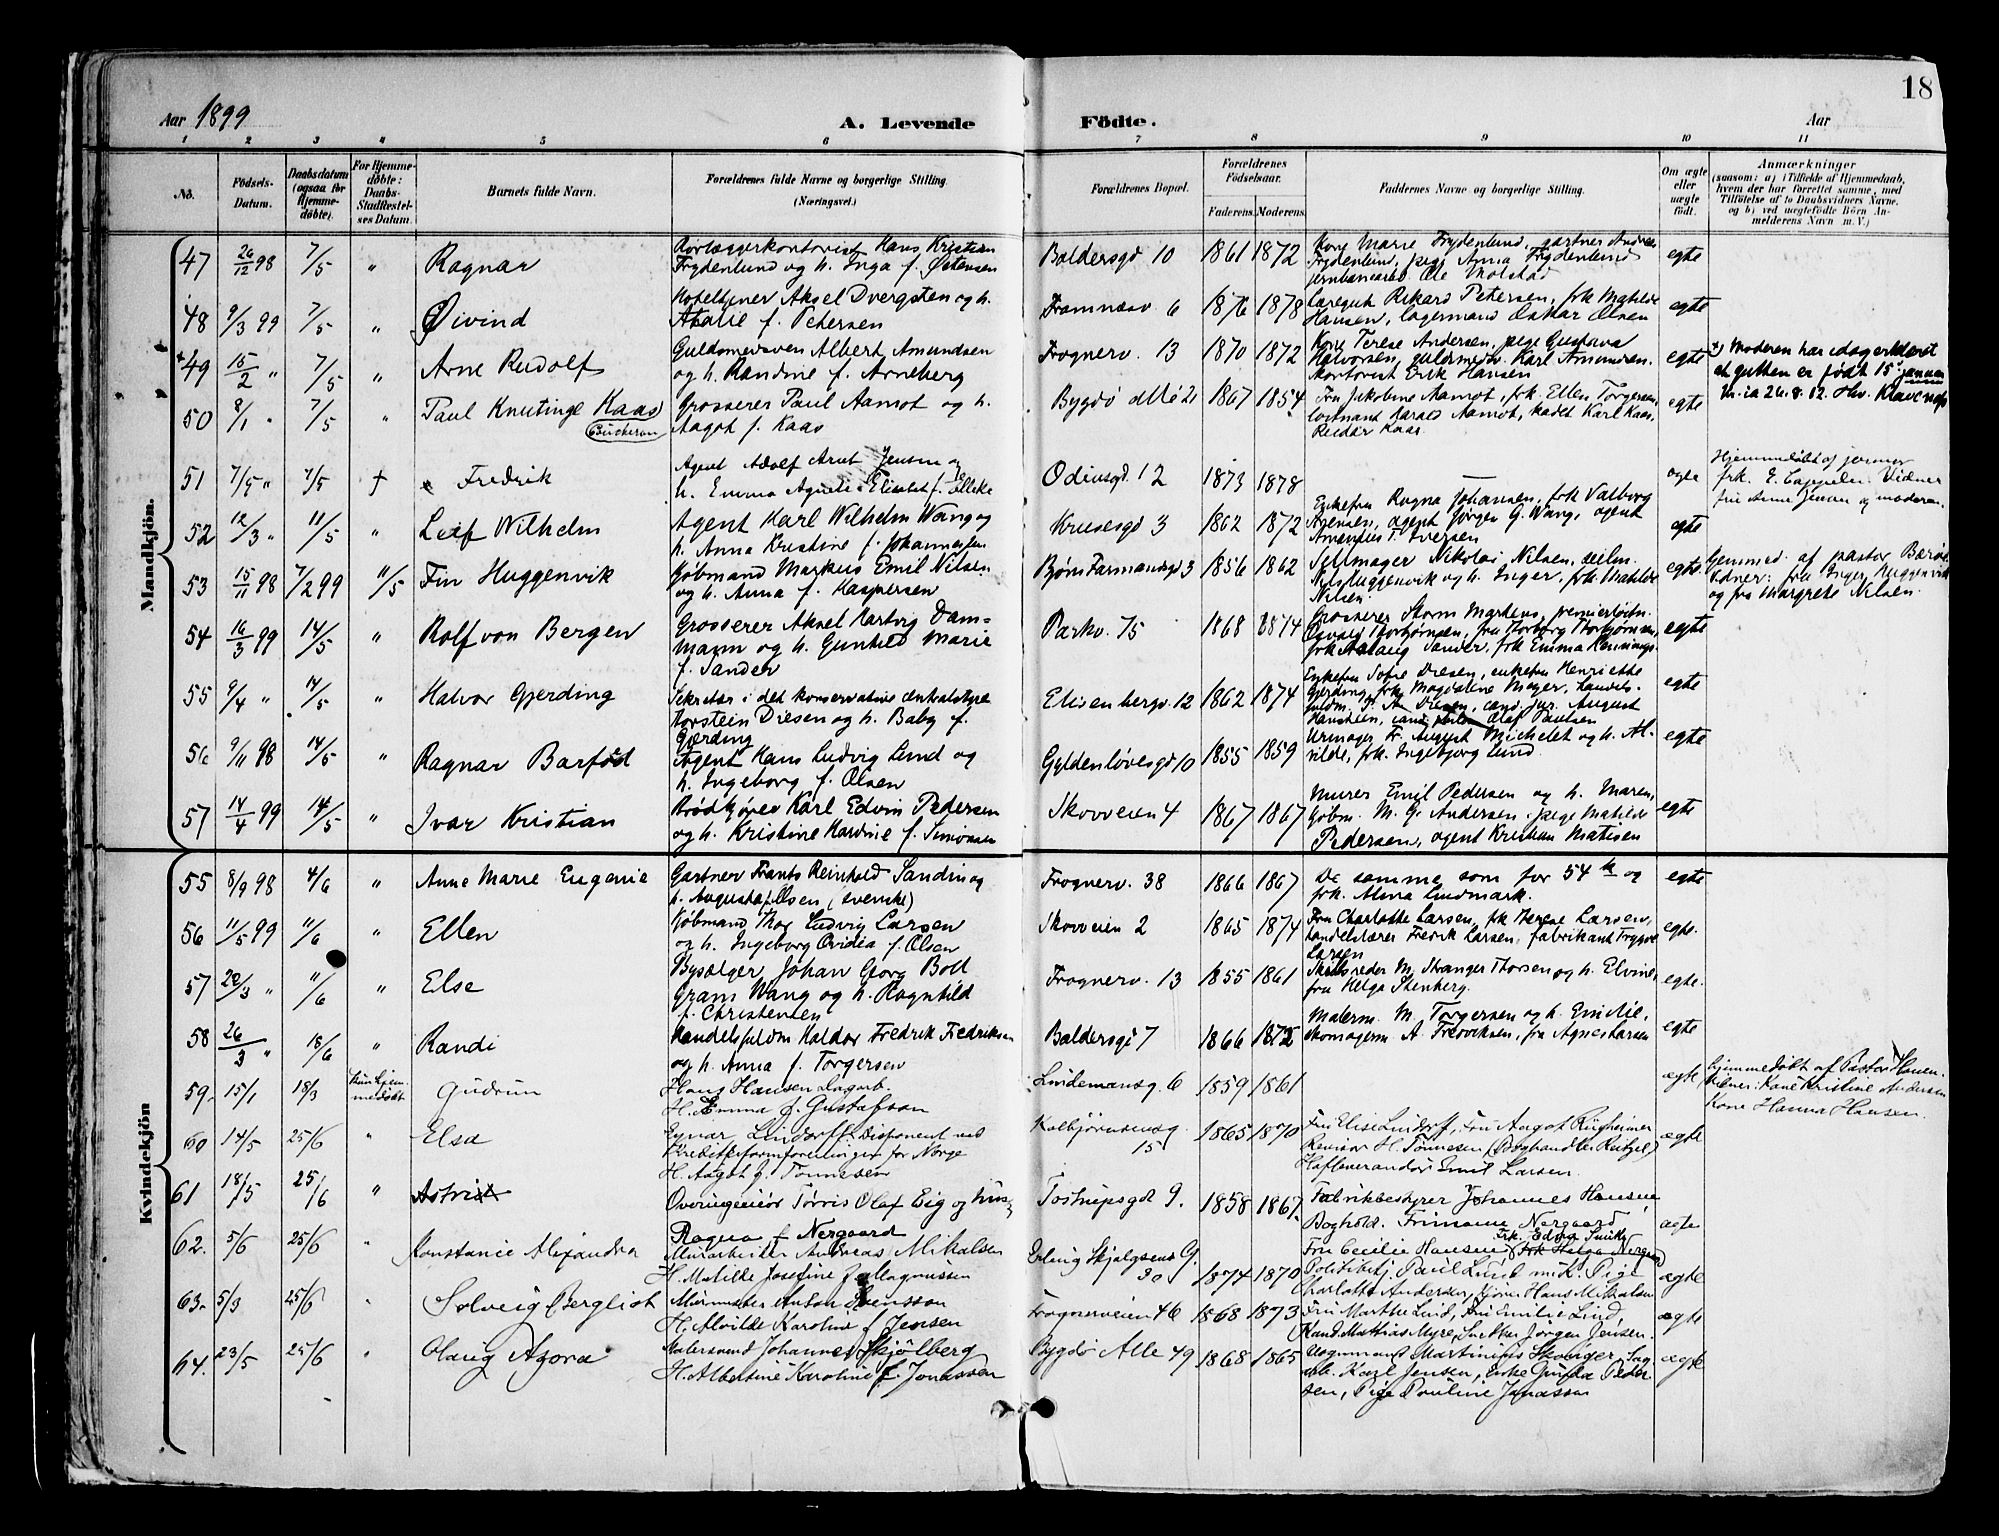 18
Aar 1899
A. Levende Födte.
Aar
1 2 3 4 5 6 7 8 9 10 11
No.
Födsels-Datum.
Daabsdatum (ogsaa for Hjemmedöbte).
For Hjemmedöbte: Daabs-Stadfæstelses Datum.
Barnets fulde Navn.
Forældrenes fulde Navne og borgerlige Stilling. (Næringsvei.)
Forældrenes Bopæl.
Forældrenes Födselsaar.
Faderens. Moderens.
Faddernes Navne og borgerlige Stilling.
Om ægte eller uægte födt.
Anmærkninger
(saasom: a) i Tilfælde af Hjemmedaab, hvem der har forrettet samme, med Tilföielse af to Daabsvidners Navne, og b) ved uægtefödte Börn Anmelderens Navn m. V.)
Mandkjön.
47 26/12 98 7/5 " Ragnar
Rørlæggerkontorist Hans Kristian
Frydenlund og h. Inga f. Østensen
Baldersgd 10 1861 1872
Kone Marie Frydenlund, gartner Andreas
Frydenlund, pige Anna Frydenlund
jernbanearb. Ole Molstad
egte
48 9/3 99 7/5 " Øivind
Hoteltjener Aksel Dvergsten og h.
Atalie f. Petersen
Framnæsv 6 1876 1878
Læregut Rikard Petersen, frk Matilde
Hansen, lagermand Oskar Olsen
egte
+49 15/2 " 7/5 " Arne Rudolf
Guldsmedsven Albert Amundsen
og h. Randine f. Arneberg
Frognerv. 13 1870 1872
Kone Terese Andersen, pige Gustava
Halvorsen, guldsmedsv. Karl Amundsen.
kontorist Erik Hansen
egte
+) Moderen har idag erklæret
at gutten er født 15 januar
26.8.12.
50 8/1 " 7/5 " Paul Knutinge Kaas
Grosserer Paul Aamot og h.
Aagot f. Kaas
Bygdø allé 21 1867 1854
Fru Jakobine Aamot, frk Ellen Torgersen
løitnant Harald Aamot, kadet Karl Kaas,
Reidar Kaas
egte
51 7/5 " 7/5 + Fredrik
Agent Adolf Arnt Jensen og
h. Emma Agnete Elisabet f. Ellike
Odinsgd 12 1873 1878
ogte
Hjemmedøbt af jormor
frk. E. Cappelen. Vidner
fru Anne Jensen og moderen.
52 12/3 " 11/5 " Leif Wilhelm
Agent Karl Wilhelm Wang og
h. Anna Kristine f. Johannessen
Krusesgd 3 1862 1872
Enkefru Ragna Johansen, frk Valborg
Svensen, agent Jørgen G. Wang, agent
Amandus T. Iversen
egte
53 15/11 98 7/2 99 11/5 Fin Huggenvik
Kjøbmand Markus Emil Nilsen
og h. Anna f. Kaspersen
Bjørn Farmandsgd 3 1856 1862
Seilmager Nikolai Nilsen, seilm.
Nils Huggenvik og h. Inger, frk Matilde
Nilsen.
egte
Hjemmed. af pastor
Vidner: fru Inger Huggenvik
og fru Margrete Nilsen.
54 16/3 99 14/5 " Rolf von Bergen
Grosserer Aksel Hartvig Dam-
mann og h. Gunhild Marie
f. Sander
Parkv. 75 1868 1874
Grosserer Storm Martens, premierløitn.
Osvald Thorbjørnsen, fru Thorborg Thorbjørnsen,
frk Aslaug Sander, frk Emma Hennings
egte
55 9/4 " 14/5 " Halvor Gjerding
Sekretær i det konservative centralstyre
Torstein Diesen og h. Baby f.
Gjerding
Elisenbergv. 12 1862 1874
Enkefru Sofie Diesen, enkefru Henriette
Gjerding, frk Magdaline Meyer, handels-
fuldm. P. A. Diesen, cand. jur. August
Hansteen, cand. philos Olaf Paulsen
egte
56 9/11 98 14/5 " Ragnar Barfod
Agent Hans Ludvig Lund og
h. Ingeborg f. Olsen
Gyldenløvesgd 10 1855 1859
Urmager Fr. August Michelet og h. Al-
vilde, frk. Ingebjorg Lund
egte
57 14/4 99 14/5 " Ivar Kristian
Brødkjører Karl Edvin Pedersen
og h. Kristine Hardine f. Simonsen
Skovveien 4 1867 1867
Murer Emil Pedersen og h. Maren,
kjøbm. M. G. Andersen, pige Matilde
Pedersen, agent Kristian Matisen
egte
Kvindekjön
55 8/9 98 4/6 " Anne Marie Eugenie
Gartner Frants Reinhold Sandin og
h. Augusta f. Olsen (svenske)
Frognerv. 38 1866 1867
De samme som for 54 k og
frk. Alma Lindmark.
egte
56 11/5 99 11/6 " Ellen
Kjøbmand Thor Ludvig Larsen
og h. Ingeborg Ovidia f. Olsen
Skovveien 2 1865 1874
Fru Charlotte Larsen, frk Therese Larsen,
handelslærer Fredrik Larsen, fabrikant Trygve
Larsen
egte.
57 22/3 " 11/6 " Else
Bysælger Johan Georg Boll
Gram Wang og h. Ragnhild
f. Christensen
Frognerv. 13 1855 1861
Skibsreder M. Stranger Thorsen og h. Elvine,
fru Helga Stenberg.
egte.
58 26/3 " 18/6 " Randi
Handelsfuldm Haldor Fredrik Fredriksen
og h. Anna f. Torgersen
Baldersgd 7 1866 1872
Malerm. M. Torgersen og h. Emilie,
Skomagerm. A Fredriksen, fru Agnes Larsen
egte
59. 15/1 18/3 kun hjemmedøbt Gudrun
Hans Hansen Lagerb.
H. Emma f. Gustafson
Lindemansg. 6 1859 1861
ægte
hjemmedøbt af Pastor Hansen.
Vidner: Kone Kristine Andersen
Kone Hanna Hansen.
60 14/5 25/6 " Elsa
Eynar Lindorff Disponent ved
Kreditreformforeningen for Norge
H. Aagot f. Tønnessen
Kolbjørnsensg. 15 1865 1870
Fru Elise Lindorf, Fru Aagot Ringheimer
Revisor H. Tønnesen (Boghandler Reitzel)
Hofleverandør Emil Larsen.
ægte
61 18/5 25/6 " Astrid
Overingeniør Tørris Olaf Eig og hus-
Ragna f Nergaard
Tostrupsgd 9. 1858 1867
Fabrikbestyrer Johannes Hansen,
Bogholder. Nergaard
Frk. Edna Smith
Fru Cecilie Hansen (frk Helga Nergaard)
ægte
62. 5/6 25/6 " Konstanse Alexandra
Murarbeider Andreas Mikalsen
H. Matilde Josefine f. Magnussen
Erling Skjalgsøns G. 30 1874 1870
Politibetj. Paul Lund m.k. Pige
Charlotte Andersen, Hans Mikalsen
ægte
63. 5/3 25/6 " Solveig Bergliot
Murmester Anton Svensson
H. Alvilde Karoline f Jensen
Frognerveien 46 1868 1873
Fru Marthe Lind, Fru Emilie Lind,
Kand Mattias Myre, Snekker Jørgen Jensen.
ægte
64. 23/5 25/6 " Olaug Azora
Malersvend Johannes Skjølberg
H. Albertine Karoline f. Jonassen
Bygdø Alle 49 1868 1865
Vognmand Martinius Skovger, Sag-
arb. Karl Jensen, Enke Gunda Peder-
sen, Pige Pauline Jonassen
ægte